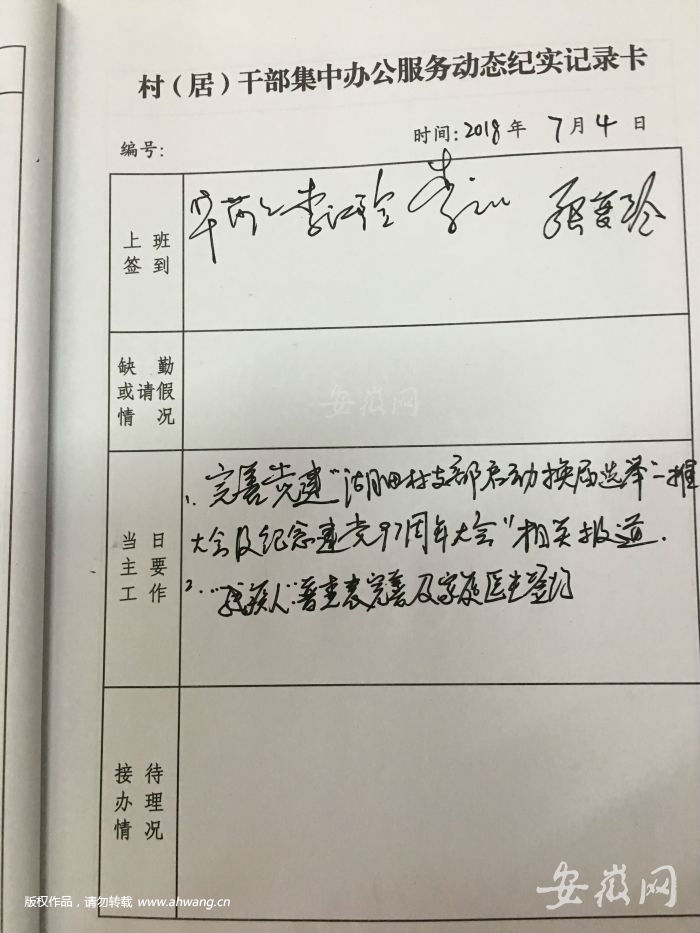 村（居）干部集中办公服务动态纪实记录卡
编号：
时间：2018年 7月4日
上班
签到
李江玲
缺勤
或请假
情况
安徽网
当日
主要
工作
1. 完善党建"湖田村支部启动换届选举"一推
大会及纪念建党97周年大会"相关报道.
2. "残疾人"普查表完善及家庭医生签约
接待
办理
情况
版权作品，请勿转载 www.ahwang.cn
安徽网